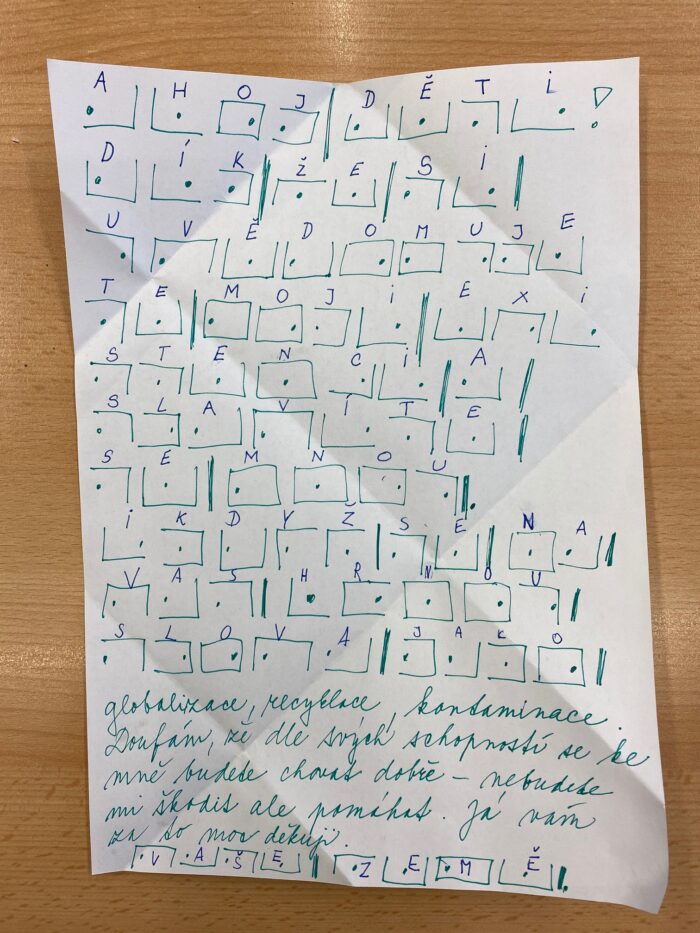 AHOJ DĚTI!
DÍK ŽE SI
UVĚDOMUJE
TE MOJI EXI
STENCI A
SLAVÍTE
SE MNOU.
I KDYŽ SE NA
VAS HRNOU
SLOVA JAKO
globalizace, recyklace, kontaminace.
Doufám, že dle svých schopností se ke
mně budete chovat dobře – nebudete
mi škodit ale pomáhat. Já vám
za to moc děkuji.
VAŠE ZEMĚ.